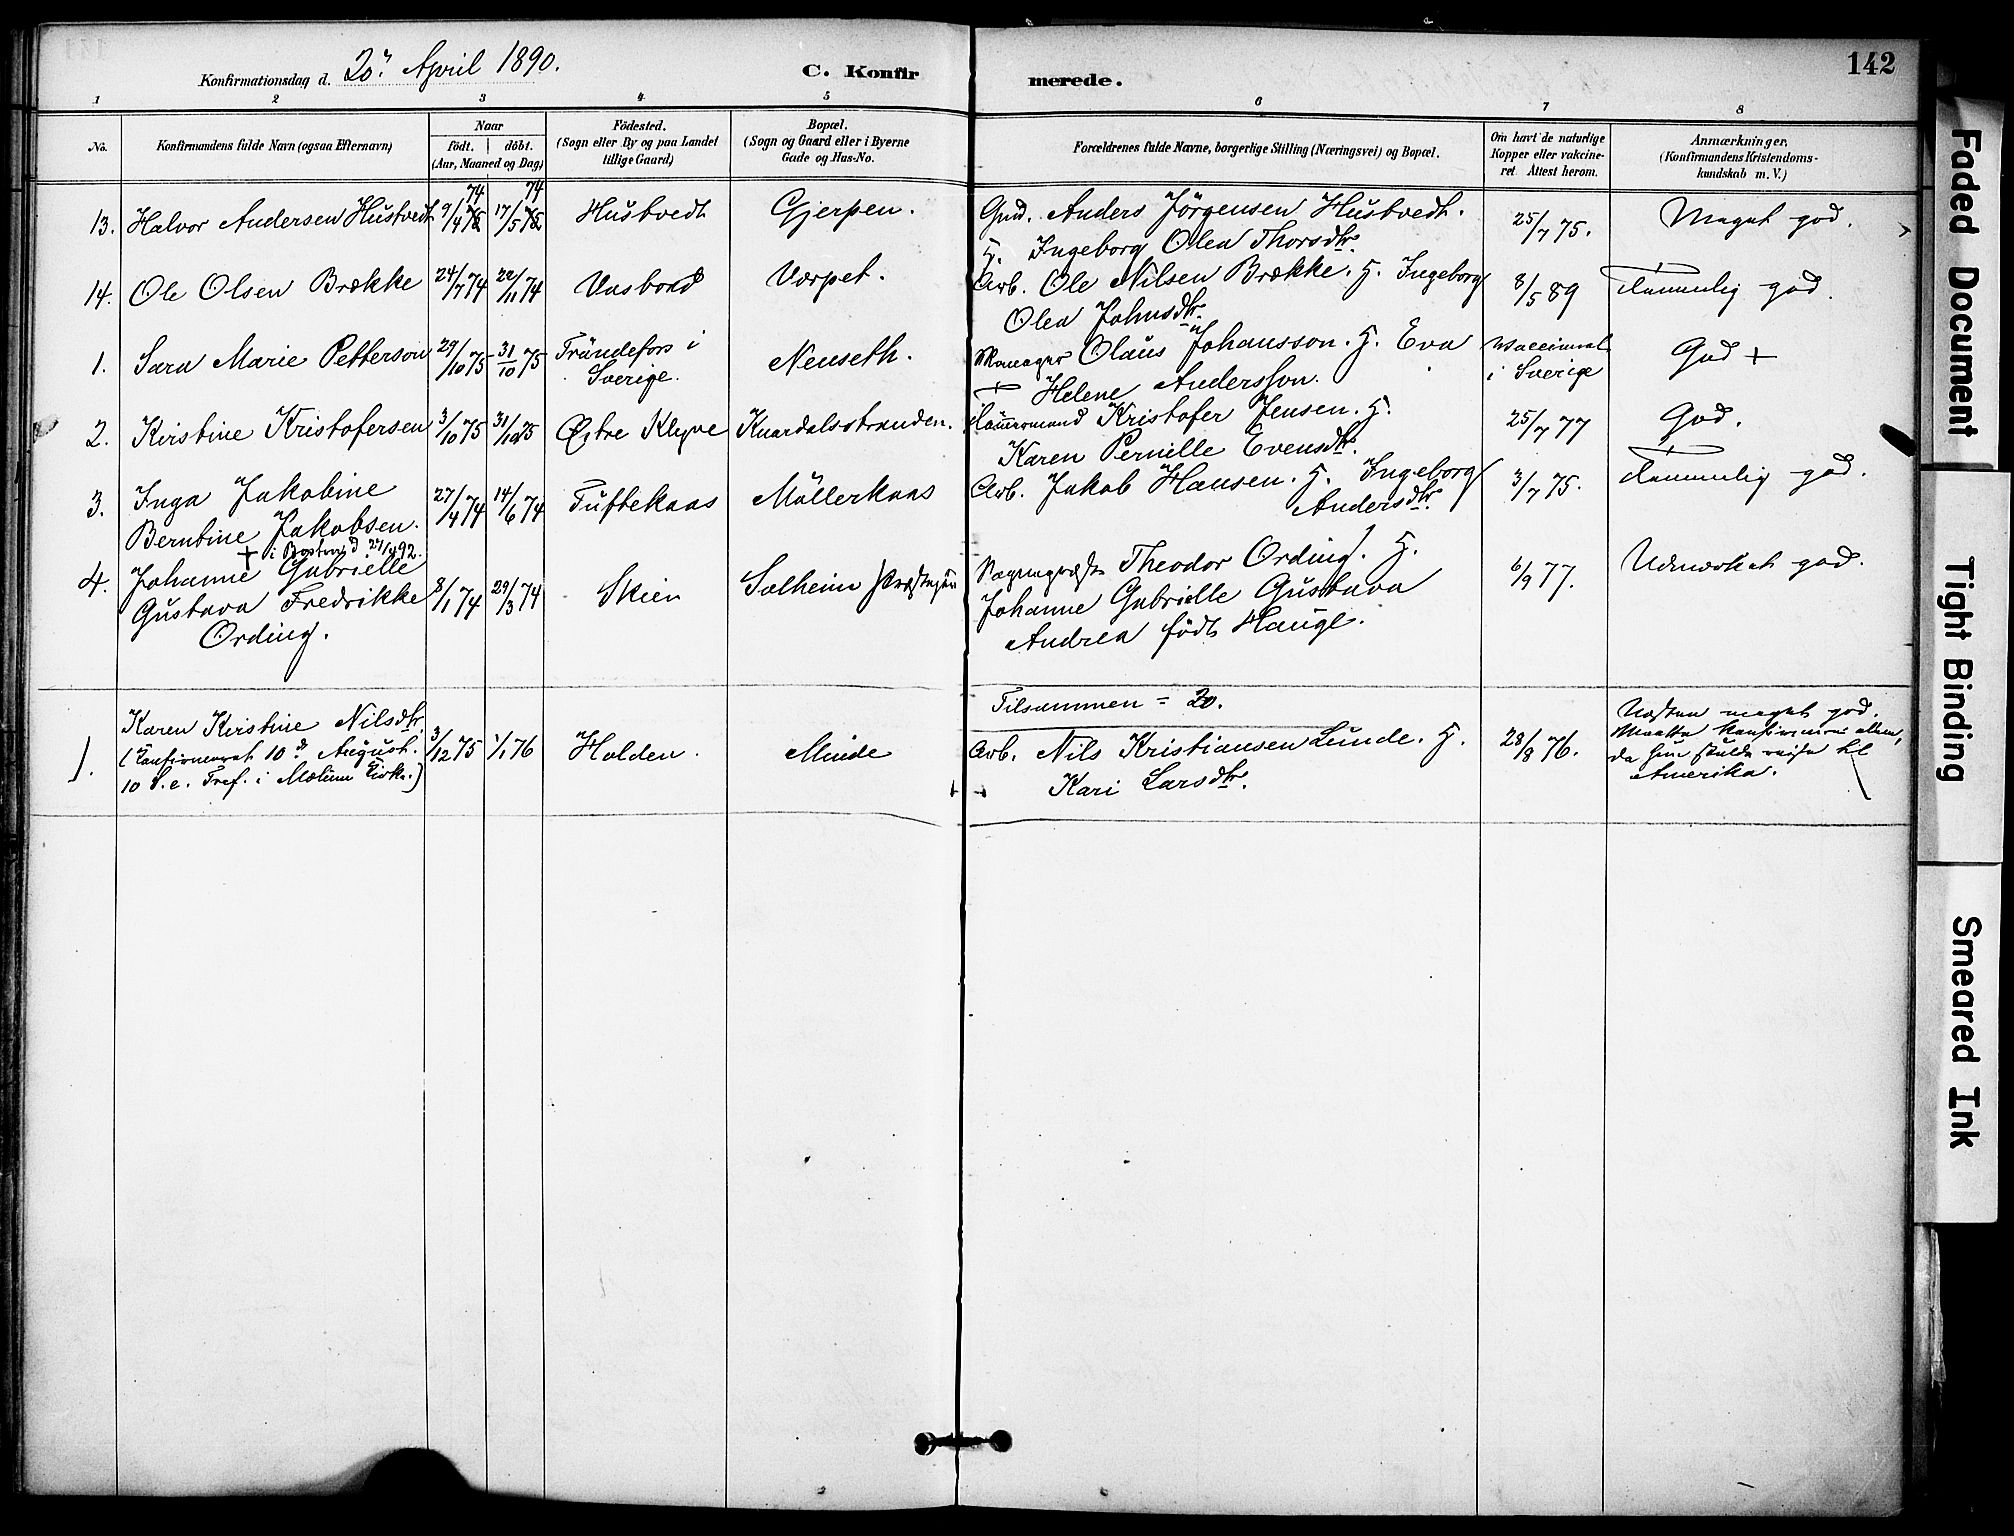 142
Konfirmationsdag d. 20.' April 1890.
C. Konfirmerede.
1 2 3 4 5 6 7 8
No.
Konfirmandens fulde Navn (ogsaa Efternavn)
Naar
födt. döbt.
(Aar, Maaned og Dag)
Födested.
(Sogn eller By og paa Landet
tillige Gaard)
Bopæl.
(Sogn og Gaard eller i Byerne
Gade og Hus-No.
Forældrenes fulde Navne, borgerlige Stilling (Næringsvei) og Bopæl.
Om havt de naturlige
Kopper eller vakcine-
ret. Attest herom.
Anmærkninger.
(Konfirmandens Kristendoms-
kundskab m. V.)
13. Halvor Andersen Hustvedt 9/4 74 17/5 74 Hustvedt Gjerpen. Gmd. Anders Jörgensen Hustvedt. 25/7 75. Meget god.
H. Ingeborg Olea Thorsdtr.
14. Ole Olsen Brække 24/7 74 22/11 74 Vasbond Værpet. Arb. Ole Nilsen Brække. H. Ingeborg 8/5 89 Temmelig god.
Olea Johnsdtr.
1. Sara Marie Petterson 29/10 75 31/10 75 Trändefors i Neuseth. Manager Olaus Johansson. H. Eva Vaccineret God +
Sverige. + Helene Andersson. i Sverige
2. Kristine Kristofersen 3/10 75 31/10 75 Østre Klyve Knardalsstranden. Tömmermand Kristofer Jensen. H. 25/7 77 God.
Karen Pernille Evensdtr.
3. Inga Jakobine 27/4 74 14/6 74 Tuftekaas Möllerkaas Arb. Jakob Hansen. H. Ingeborg 3/7 75. Temmelig god.
Berntine Jakobsen. Andersdtr.
+ i Boston d. 27/4 92.
4. Johanne Gabrielle 8/1 74 29/3 74 Skien Solheim Sognepræst Theodor Ording. H. 6/9 77. Udmærket god.
Gustava Fredrikke Johanne Gabrielle Gustava
Ording. Andrea födt Hauge.
Tilsammen = 20.
1. Karen Kristine Nilsdtr. 3/12 75 1/1 76 Holden. Minde Arb. Nils Kristiansen Lunde. H. 28/8 76. Næsten meget god.
(Konfirmeret 10de August. Kari Larsdtr. Maatte konfirmeres alene,
10 S. e. Tref. i Mælum Kirke.) da hun skulde reise til
Amerika.
Faded Document
Tight Binding
Smeared Ink